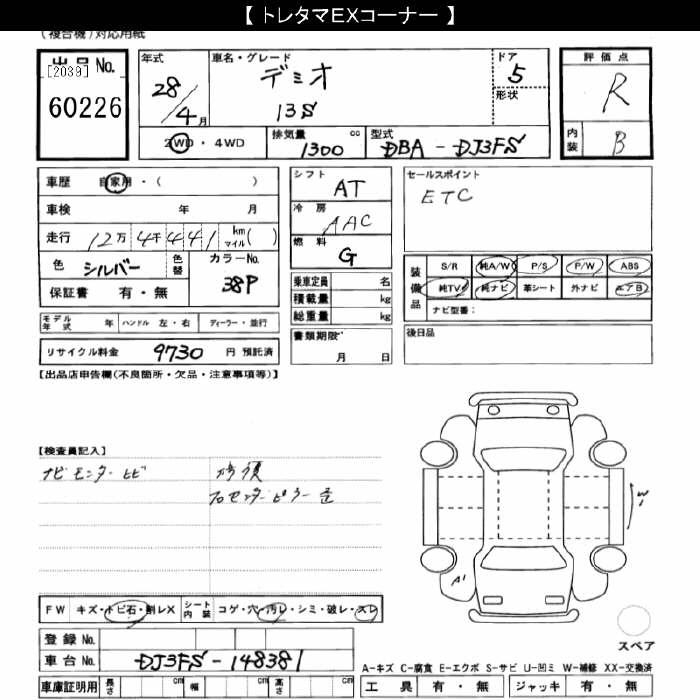 【 トレタマEXコーナー 】
(複合機)対応用紙
出品 No.
[2039]
60226
年式
28/4月
車名・グレード
デミオ
13S
ドア
5
形状
評価点
R
内装
B
2WD・4WD
排気量
1300
cc
型式
DBA - DJ3FS
車歴 自家用・( )
車検 年 月
走行 12万 4千 4 4 1 km マイル( )
色 シルバー 色替 カラーNo. 38P
保証書 有・無
シフト
AT
冷房
AAC
燃料
G
乗車定員 名
積載量 kg
総重量 kg
書類期限
月 日
セールスポイント
ETC
装備品
S/R 純A/W P/S P/W ABS
純TV 純ナビ 革シート 外ナビ エアB
ナビ型番:
後日品
モデル年式 年 ハンドル 左・右 ディーラー・並行
リサイクル料金 9730 円 預託済
【出品店申告欄(不良箇所・欠品・注意事項等)】
【検査員記入】
ナビモニターヒビ
右センターピラー
W1
A1
FW キズ・トビ石・割レX シート内装 コゲ・穴・汚レ・シミ・破レ・スレ
スペア
登録 No.
車台 No. DJ3FS-148381
A-キズ C-腐食 E-エクボ S-サビ U-凹ミ W-補修 XX-交換済
車庫証明用 長さ cm 幅 cm 高さ cm
工具 有・無 ジャッキ 有・無